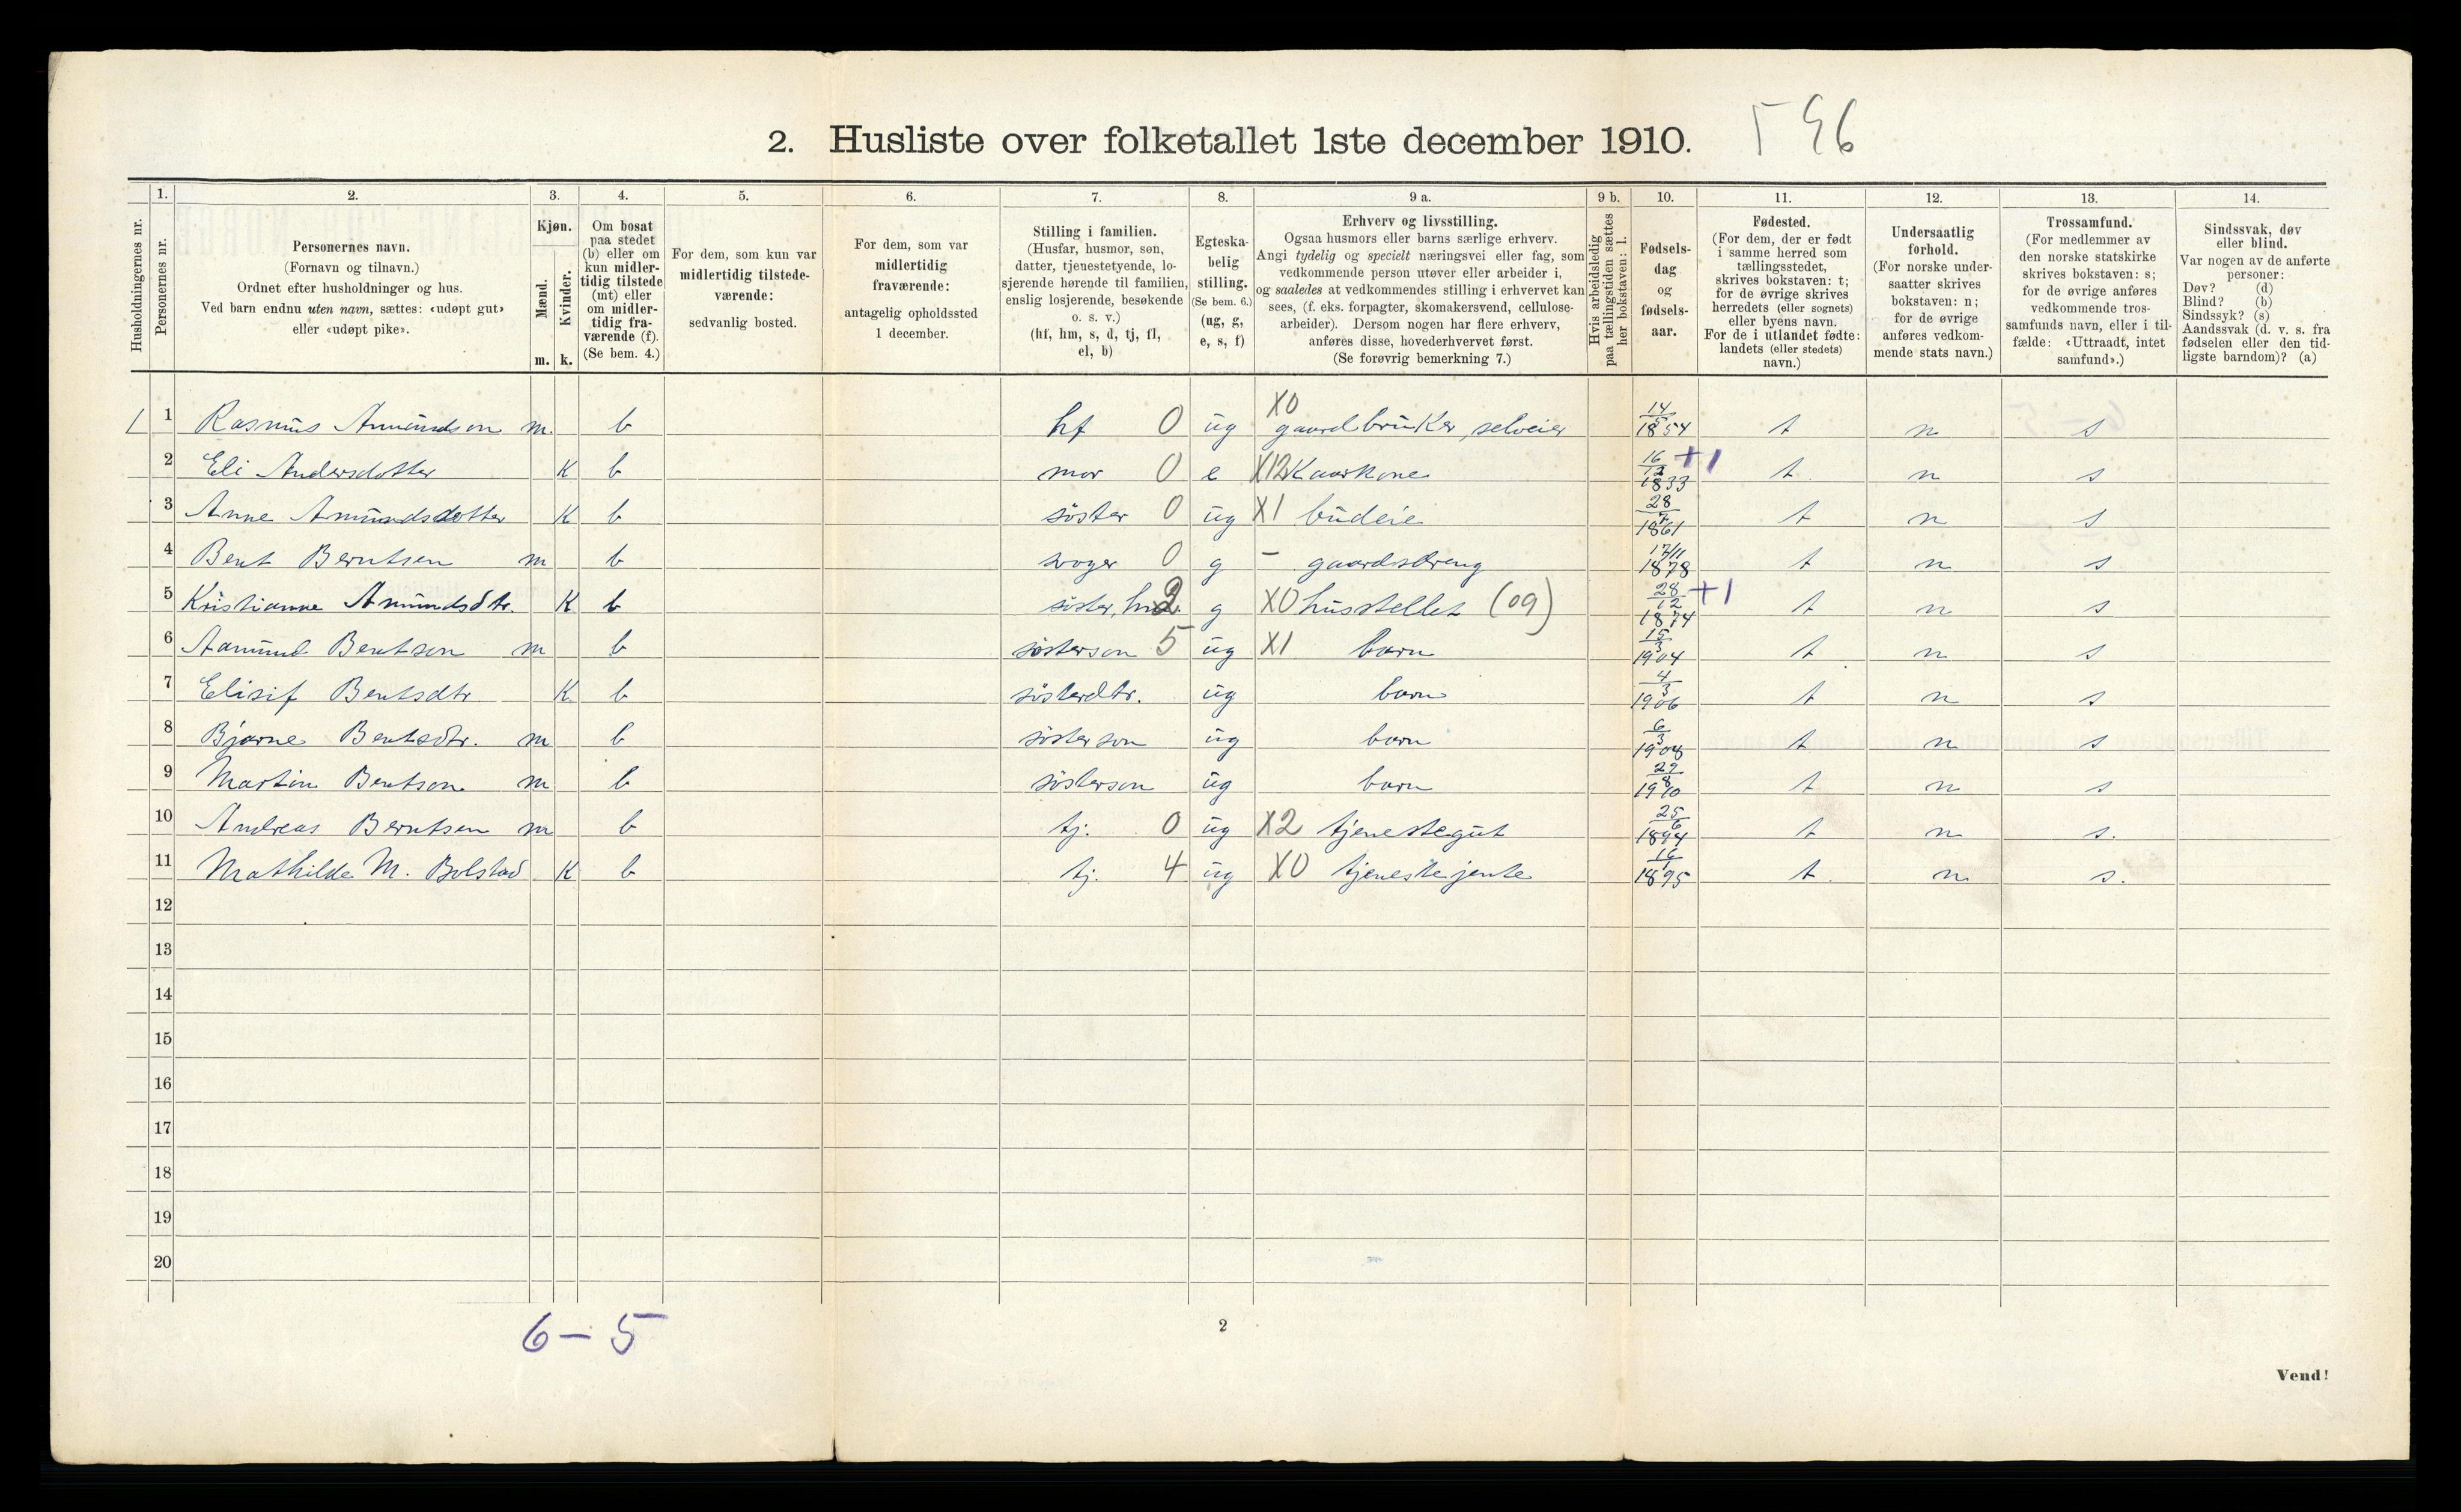 2. Husliste over folketallet 1ste december 1910.
Husholdningernes nr.
1. Personernes nr.
2. Personernes navn.
(Fornavn og tilnavn.)
Ordnet efter husholdninger og hus.
Ved barn endnu uten navn, sættes: «udøpt gut»
eller «udøpt pike».
3. Kjøn.
Mænd. Kvinder.
m. k.
4. Om bosat
paa stedet
(b) eller om
kun midler-
tidig tilstede
(mt) eller
om midler-
tidig fra-
værende (f).
(Se bem. 4.)
5. For dem, som kun var
midlertidig tilstede-
værende:
sedvanlig bosted.
6. For dem, som var
midlertidig
fraværende:
antagelig opholdssted
1 december.
7. Stilling i familien.
(Husfar, husmor, søn,
datter, tjenestetyende, lo-
sjerende hørende til familien,
enslig losjerende, besøkende
o. s. v.)
(hf, hm, s, d, tj, fl,
el, b)
8. Egteska-
belig
stilling.
(Se bem. 6.)
(ug, g,
e, s, f)
9 a. Erhverv og livsstilling.
Ogsaa husmors eller barns særlige erhverv.
Angi tydelig og specielt næringsvei eller fag, som
vedkommende person utøver eller arbeider i,
og saaledes at vedkommendes stilling i erhvervet kan
sees, (f. eks. forpagter, skomakersvend, cellulose-
arbeider). Dersom nogen har flere erhverv,
anføres disse, hovederhvervet først.
(Se forøvrig bemerkning 7.)
9 b. Hvis arbeidsledig
paa tællingstiden sættes
her bokstaven: l.
10. Fødsels-
dag
og
fødsels-
aar.
11. Fødested.
(For dem, der er født
i samme herred som
tællingsstedet,
skrives bokstaven: t;
for de øvrige skrives
herredets (eller sognets)
eller byens navn.
For de i utlandet fødte:
landets (eller stedets)
navn.)
12. Undersaatlig
forhold.
(For norske under-
saatter skrives
bokstaven: n;
for de øvrige
anføres vedkom-
mende stats navn.)
13. Trossamfund.
(For medlemmer av
den norske statskirke
skrives bokstaven: s;
for de øvrige anføres
vedkommende tros-
samfunds navn, eller i til-
fælde: «Uttraadt, intet
samfund».)
14. Sindssvak, døv
eller blind.
Var nogen av de anførte
personer:
Døv? (d)
Blind? (b)
Sindssyk? (s)
Aandssvak (d. v. s. fra
fødselen eller den tid-
ligste barndom)? (a)
1 1 Rasmus Amundson m. b hf 0 ug X0 gaardbruker, selveier 14/5 1854 t n s
2 Eli Andersdotter K b mor 0 e X12 Kaarkone 16/12 1833 +1 t n s
3 Anne Amundsdotter K b söster 0 ug X1 budeie 28/7 1861 t n s
4 Bent Berntsen m b svoger 0 g - gaardsdreng 17/11 1878 t n s
5 Kristianne Amundsdtr. K b söster, 2 g X0 husstellet (09) 28/12 1874 +1 t n s
6 Aamund Bentson m b sösterson 5 ug X1 barn 15/3 1904 t n s
7 Elisif Bentsdtr K b sösterdtr. ug barn 4/3 1906 t n s
8 Bjarne Bentsdtr. m b sösterson ug barn 6/3 1908 t n s
9 Martin Bentson m b sösterson ug barn 29/8 1910 t n s
10 Andreas Berntsen m b tj. 0 ug X2 tjenestegut 25/6 1894 t n s.
11 Mathilde M. Bolstad K b tj. 4 ug X0 tjenestejente 16/1 1895 t n s.
12
13
14
15
16
17
18
19
20
6 - 5
2
Vend!